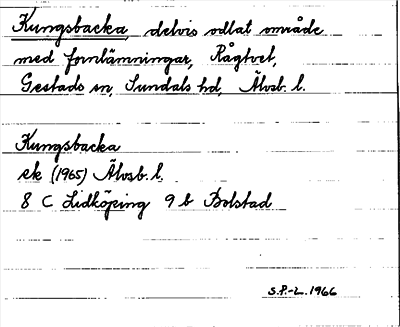 Kungsbacka, delvis odlat område
med fornlämningar, Rågtvet,
Gestads sn, Sundals hd, Älvsb. l.
Kungsbacka
ek (1965) Älvsb. l.
8 C Lidköping 9 b Bolstad
S.P-L. 1966